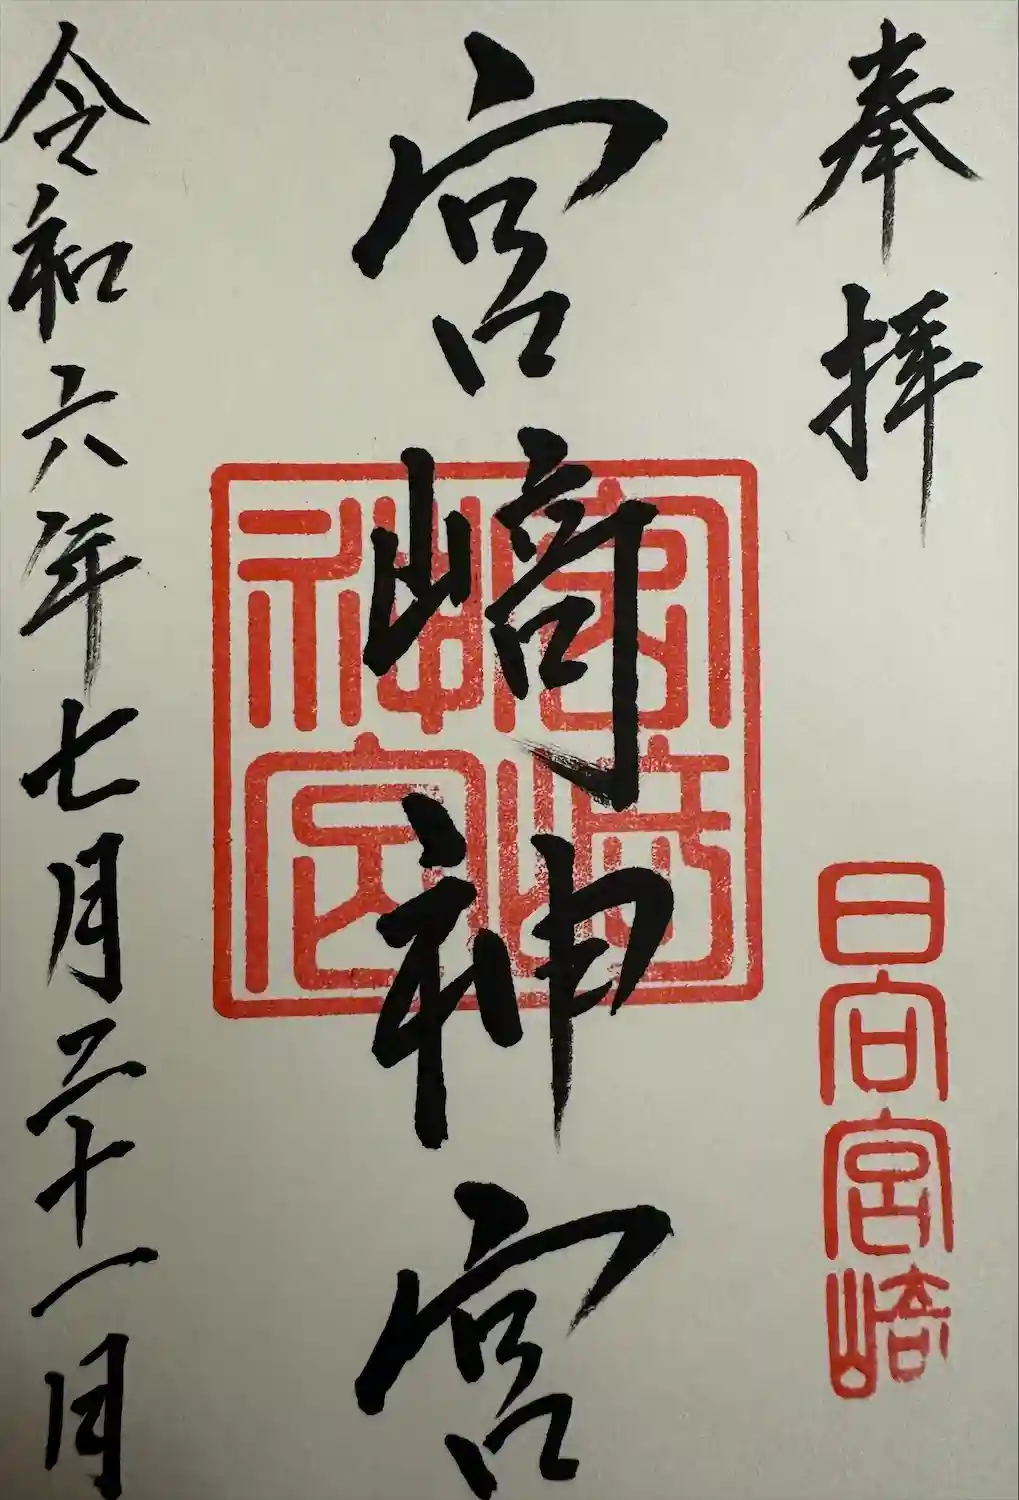 奉拝
日向宮崎
宮崎神宮
宮崎神宮
令和六年七月二十一日